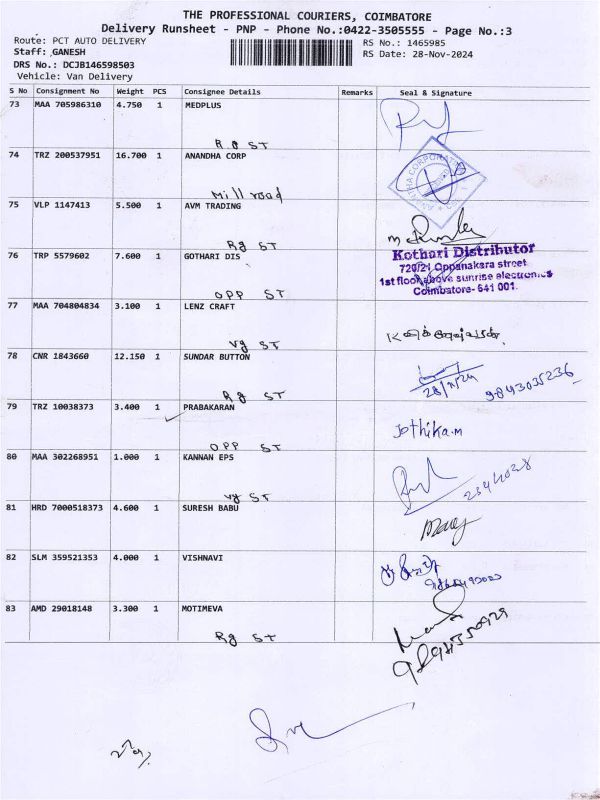 THE PROFESSIONAL COURIERS, COIMBATORE
Delivery Runsheet - PNP - Phone No.:0422-3505555 - Page No.:3
Route: PCT AUTO DELIVERY RS No.: 1465985
Staff: GANESH RS Date: 28-Nov-2024
DRS No.: DCJB146598503
Vehicle: Van Delivery
S No Consignment No Weight PCS Consignee Details Remarks Seal & Signature
73 MAA 705986310 4.750 1 MEDPLUS
R G ST
74 TRZ 200537951 16.700 1 ANANDHA CORP
Mill road
75 VLP 1147413 5.500 1 AVM TRADING
Rg ST
76 TRP 5579602 7.600 1 GOTHARI DIS
Kothari Distributor
720/21 Oppanakara street
1st floor, above sunrise electronics
Coimbatore- 641 001.
OPP ST
77 MAA 704804834 3.100 1 LENZ CRAFT
Vg ST
78 CNR 1843660 12.150 1 SUNDAR BUTTON
28/11/24 9843035236
Rg ST
79 TRZ 10038373 3.400 1 PRABAKARAN
Jothika.m
OPP ST
80 MAA 302268951 1.000 1 KANNAN EPS
Vg ST
81 HRD 7000518373 4.600 1 SURESH BABU
82 SLM 359521353 4.000 1 VISHNAVI
83 AMD 29018148 3.300 1 MOTIMEVA
Rg ST